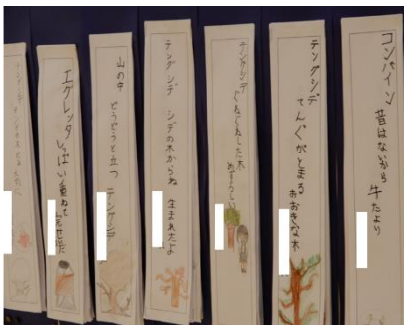 コンバイン 昔はないから 牛たより
テングシデ てんぐがとまる おおきな木
テングシデ ぐねぐねした木 めずらしい
テングシデ シデの木からね 生まれたよ
山の中 どうどうと立つ テングシデ
エグレッタ いっぱい重ねて